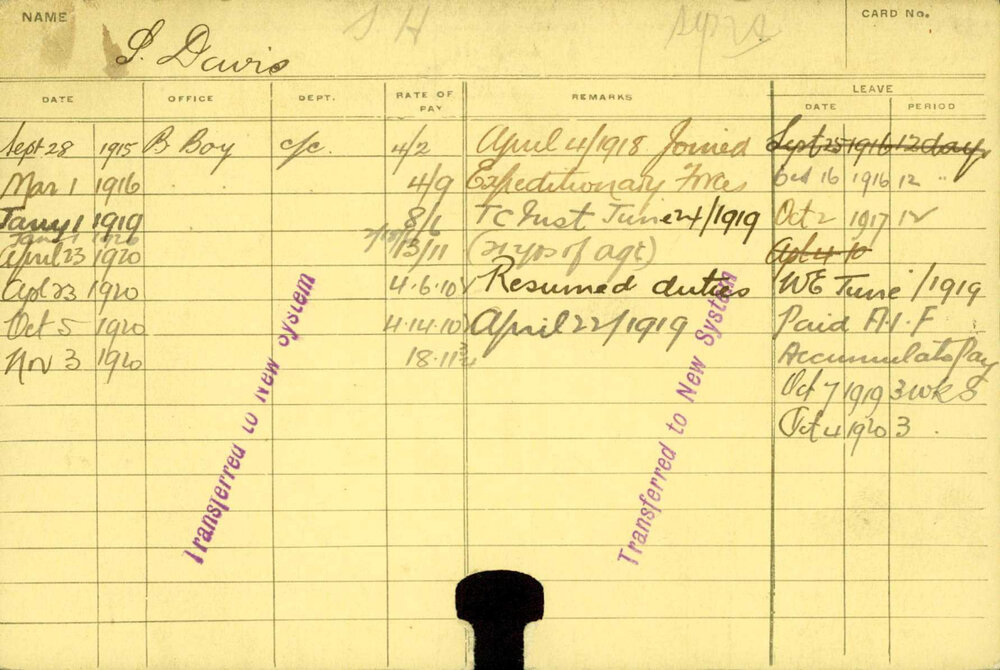 NAME
S. H
CARD No.
S. Davis
DATE OFFICE DEPT. RATE OF PAY REMARKS LEAVE
DATE PERIOD
Sept 28 1915 B Boy c/c. 4/2 April 4/1918 Joined Sept 25 1916 12 days
Mar 1 1916 4/9 Expeditionary Forces Oct 16 1916 12 "
Jany 1 1919 8/6 June 24/1919 Oct 2 1917 12
April 23 1920 13/11 (21 yrs of age) Apl 4 10
Apl 23 1920 4.6.10 Resumed duties WE June /1919
Oct 5 1920 4.14.10 April 22/1919 Paid A.I.F
Nov 3 1920 18.11 Accumulate Pay
Oct 7 1919 3 wks
Oct 4 1920 3
Transferred to New System
Transferred to New System